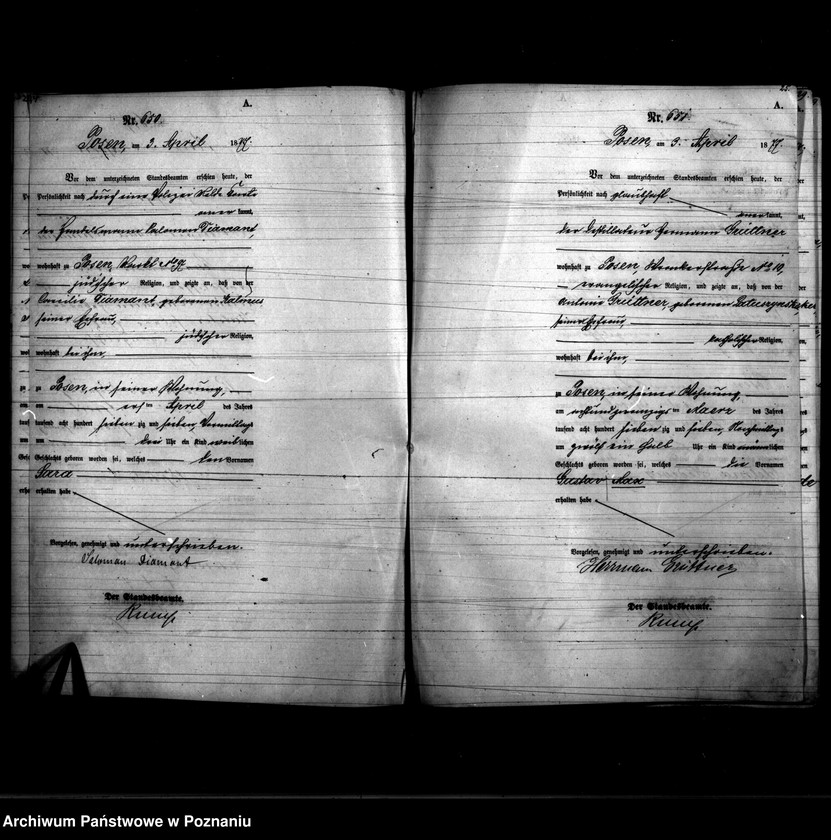 A.
Nr. 650
Posen, am 3. April 1877.
Vor dem unterzeichneten Standesbeamten erschien heute, der
Persönlichkeit nach durch eine Polizei
kannt,
der Handelsmann Salomon Diamant,
wohnhaft zu Posen, Markt No
jüdischer Religion, und zeigte an, daß von der
Diamant, geborenen Kalmus
seiner Ehefrau,
jüdischer Religion,
wohnhaft bei ihm,
zu Posen, in seiner Wohnung,
am ten April des Jahres
tausend acht hundert sieben zig und sieben, Vormittags
um drei Uhr ein Kind weiblichen
Geschlechts geboren worden sei, welches den Vornamen
Sara
erhalten habe
Vorgelesen, genehmigt und unterschrieben.
Salomon Diamant
Der Standesbeamte.
A.
Nr. 651.
Posen, am 3. April 1877.
Vor dem unterzeichneten Standesbeamten erschien heute, der
Persönlichkeit nach glaubhaft
kannt,
der Destillateur Hermann Grüttner
wohnhaft zu Posen, No 10,
evangelischer Religion, und zeigte an, daß von der
Antonie Grüttner, geborenen
seiner Ehefrau,
katholischer Religion,
wohnhaft bei ihm,
zu Posen, in seiner Wohnung,
am achtundzwanzigsten Maerz des Jahres
tausend acht hundert sieben zig und sieben, Nachmittags
um zwölf ein halb Uhr ein Kind männlichen
Geschlechts geboren worden sei, welches die Vornamen
Gustav Max
erhalten habe
Vorgelesen, genehmigt und unterschrieben.
Herrmann Grüttner
Der Standesbeamte.
Archiwum Państwowe w Poznaniu